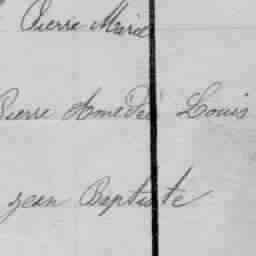 Pierre Marie
Pierre Amédée Louis
jean Baptiste